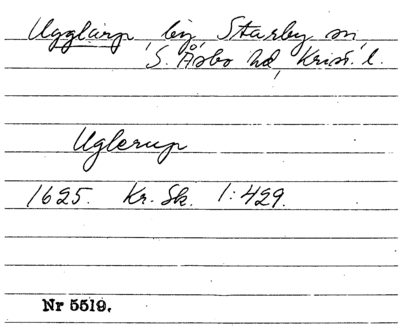 Ugglarp, by, Starby sn,
S. Åsbo hd, Krist. l.
Uglerup
1625. Kr. Sk. 1:429.
Nr 5519.